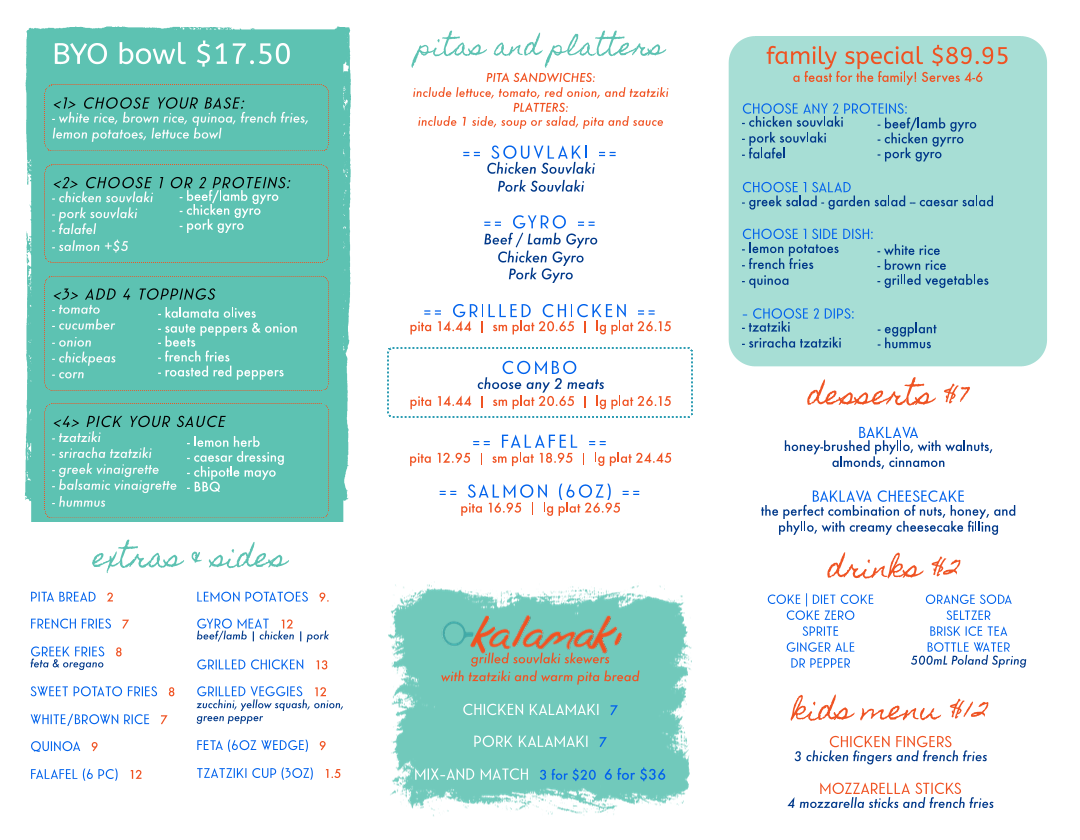 BYO bowl $17.50
<1> CHOOSE YOUR BASE:
- white rice, brown rice, quinoa, french fries,
lemon potatoes, lettuce bowl
<2> CHOOSE 1 OR 2 PROTEINS:
- chicken souvlaki
- pork souvlaki
- falafel
- salmon +$5
- beef/lamb gyro
- chicken gyro
- pork gyro
<3> ADD 4 TOPPINGS
- tomato
- cucumber
- onion
- chickpeas
- corn
- kalamata olives
- saute peppers & onion
- beets
- french fries
- roasted red peppers
<4> PICK YOUR SAUCE
- tzatziki
- sriracha tzatziki
- greek vinaigrette
- balsamic vinaigrette
- hummus
- lemon herb
- caesar dressing
- chipotle mayo
- BBQ
extras & sides
PITA BREAD 2
FRENCH FRIES 7
GREEK FRIES 8
feta & oregano
SWEET POTATO FRIES 8
WHITE/BROWN RICE 7
QUINOA 9
FALAFEL (6 PC) 12
LEMON POTATOES 9.
GYRO MEAT 12
beef/lamb | chicken | pork
GRILLED CHICKEN 13
GRILLED VEGGIES 12
zucchini, yellow squash, onion,
green pepper
FETA (6OZ WEDGE) 9
TZATZIKI CUP (3OZ) 1.5
pitas and platters
PITA SANDWICHES:
include lettuce, tomato, red onion, and tzatziki
PLATTERS:
include 1 side, soup or salad, pita and sauce
== SOUVLAKI ==
Chicken Souvlaki
Pork Souvlaki
== GYRO ==
Beef / Lamb Gyro
Chicken Gyro
Pork Gyro
== GRILLED CHICKEN ==
pita 14.44 | sm plat 20.65 | lg plat 26.15
COMBO
choose any 2 meats
pita 14.44 | sm plat 20.65 | lg plat 26.15
== FALAFEL ==
pita 12.95 | sm plat 18.95 | lg plat 24.45
== SALMON (6OZ) ==
pita 16.95 | lg plat 26.95
kalamaki
grilled souvlaki skewers
with tzatziki and warm pita bread
CHICKEN KALAMAKI 7
PORK KALAMAKI 7
MIX-AND MATCH 3 for $20 6 for $36
family special $89.95
a feast for the family! Serves 4-6
CHOOSE ANY 2 PROTEINS:
- chicken souvlaki
- pork souvlaki
- falafel
- beef/lamb gyro
- chicken gyrro
- pork gyro
CHOOSE 1 SALAD
- greek salad - garden salad – caesar salad
CHOOSE 1 SIDE DISH:
- lemon potatoes
- french fries
- quinoa
- white rice
- brown rice
- grilled vegetables
– CHOOSE 2 DIPS:
- tzatziki
- sriracha tzatziki
- eggplant
- hummus
desserts $7
BAKLAVA
honey-brushed phyllo, with walnuts,
almonds, cinnamon
BAKLAVA CHEESECAKE
the perfect combination of nuts, honey, and
phyllo, with creamy cheesecake filling
drinks $2
COKE | DIET COKE
COKE ZERO
SPRITE
GINGER ALE
DR PEPPER
ORANGE SODA
SELTZER
BRISK ICE TEA
BOTTLE WATER
500mL Poland Spring
kids menu $12
CHICKEN FINGERS
3 chicken fingers and french fries
MOZZARELLA STICKS
4 mozzarella sticks and french fries